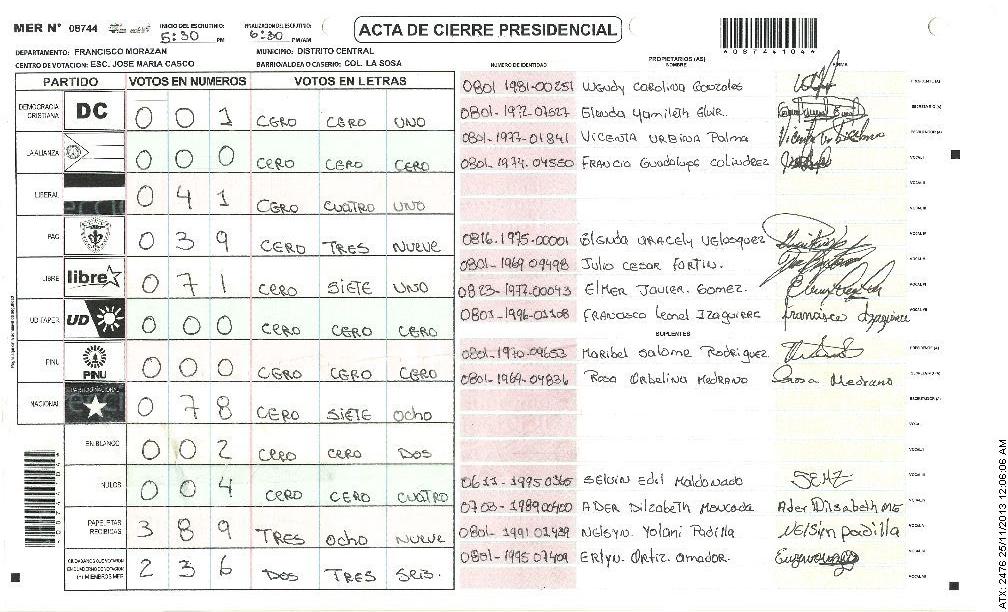 MER N° 08744 INICIO DEL ESCRUTINIO: 5:30 PM FINALIZACION DEL ESCRUTINIO: 6:30 PM/AM ACTA DE CIERRE PRESIDENCIAL
DEPARTAMENTO: FRANCISCO MORAZAN MUNICIPIO: DISTRITO CENTRAL
CENTRO DE VOTACION: ESC. JOSE MARIA CASCO BARRIO/ALDEA O CASERIO: COL. LA SOSA
PARTIDO VOTOS EN NUMEROS VOTOS EN LETRAS
DEMOCRACIA CRISTIANA DC 0 0 1 CERO CERO UNO
LA ALIANZA 0 0 0 CERO CERO CERO
LIBERAL 0 4 1 CERO CUATRO UNO
PAC 0 3 9 CERO TRES NUEVE
LIBRE libre 0 7 1 CERO SIETE UNO
UD FAPER UD 0 0 0 CERO CERO CERO
PINU PINU 0 0 0 CERO CERO CERO
NACIONAL 0 7 8 CERO SIETE OCHO
EN BLANCO 0 0 2 CERO CERO DOS
NULOS 0 0 4 CERO CERO CUATRO
PAPELETAS RECIBIDAS 3 8 9 TRES OCHO NUEVE
2 3 6 DOS TRES SEIS.
NUMERO DE IDENTIDAD PROPIETARIOS (AS) NOMBRE FIRMA
0801-1981-00251 Wendy Carolina Gonzales
Glenda Yamileth
0801-1977-01841 Vicenta Urbina Palma
0801-1974-04550 Francis Guadalupe Colindrez
0816-1975-00001 Glenda Aracely Velasquez
0801-1969 09498 Julio Cesar Fortin.
0823-1972-00043 Elmer Javier. Gomez.
Francisco Leonel Izaguirre Francisco Izaguirre
SUPLENTES
0801-1970-09653 Maribel Salome Rodriguez
0801-1969-04836 Rosa Orbelina Medrano Rosa Medrano
Selvin Edil Maldonado SEMZ
0703-1989 00400 Ader Dilzabeth Moncada
0801-1991 07439 Nelsyn. Yolani Padilla Nelsin padilla
0801-1995 07409 Erlyn. Ortiz. amador.
ATX: 2476 25/11/2013 12:06:06 AM